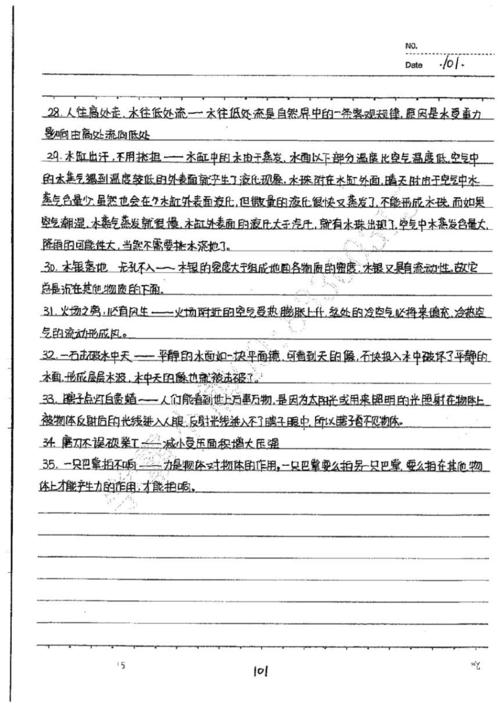 NO.
Date 101.
28. 人往高处走、水往低处流——水往低处流是自然界中的一条客观规律,原因是水受重力
影响由高处流向低处
29. 水缸出汗,不用挑担——水缸中的水由于蒸发、水面以下部分温度比空气温度低,空气中
的水蒸气遇到温度较低的外表面就产生了液化现象,水珠附在水缸外面,晴天时由于空气中水
蒸气含量少,虽然也会在水缸外表面液化,但微量的液化很快又蒸发了,不能形成水珠,而如果
空气潮湿,水蒸气蒸发就很慢,水缸外表面的液化大于汽化,就有水珠出现了,空气中水蒸气含量大,
降雨的可能性大,当然不需要挑水浇地了。
30. 水银落地 无孔不入——水银的密度大于组成地面各物质的密度,水银又是有流动性,故它
总是沉在其他物质的下面.
31. 火场之旁,必有风生——火场附近的空气受热膨胀上升,远处的冷空气必将来填充,冷热空
气的流动形成风。
32. 一石击破水中天——平静的水面如一块平面镜,可看到天的像,石块投入水中破坏了平静的
水面,形成层层水波,水中天的像也就被击破了。
33. 瞎子点灯白费蜡——人们能看到世上万事万物,是因为太阳光或用来照明的光照射在物体上
被物体反射后的光线进入人眼,反射光线进入不了瞎子眼中,所以瞎子看不见物体.
34. 磨刀不误砍柴工——减小受压面积增大压强
35. 一只巴掌拍不响——力是物体对物体的作用,一只巴掌要么拍另一只巴掌,要么拍在其他物
体上才能产生力的作用,才能拍响。
101